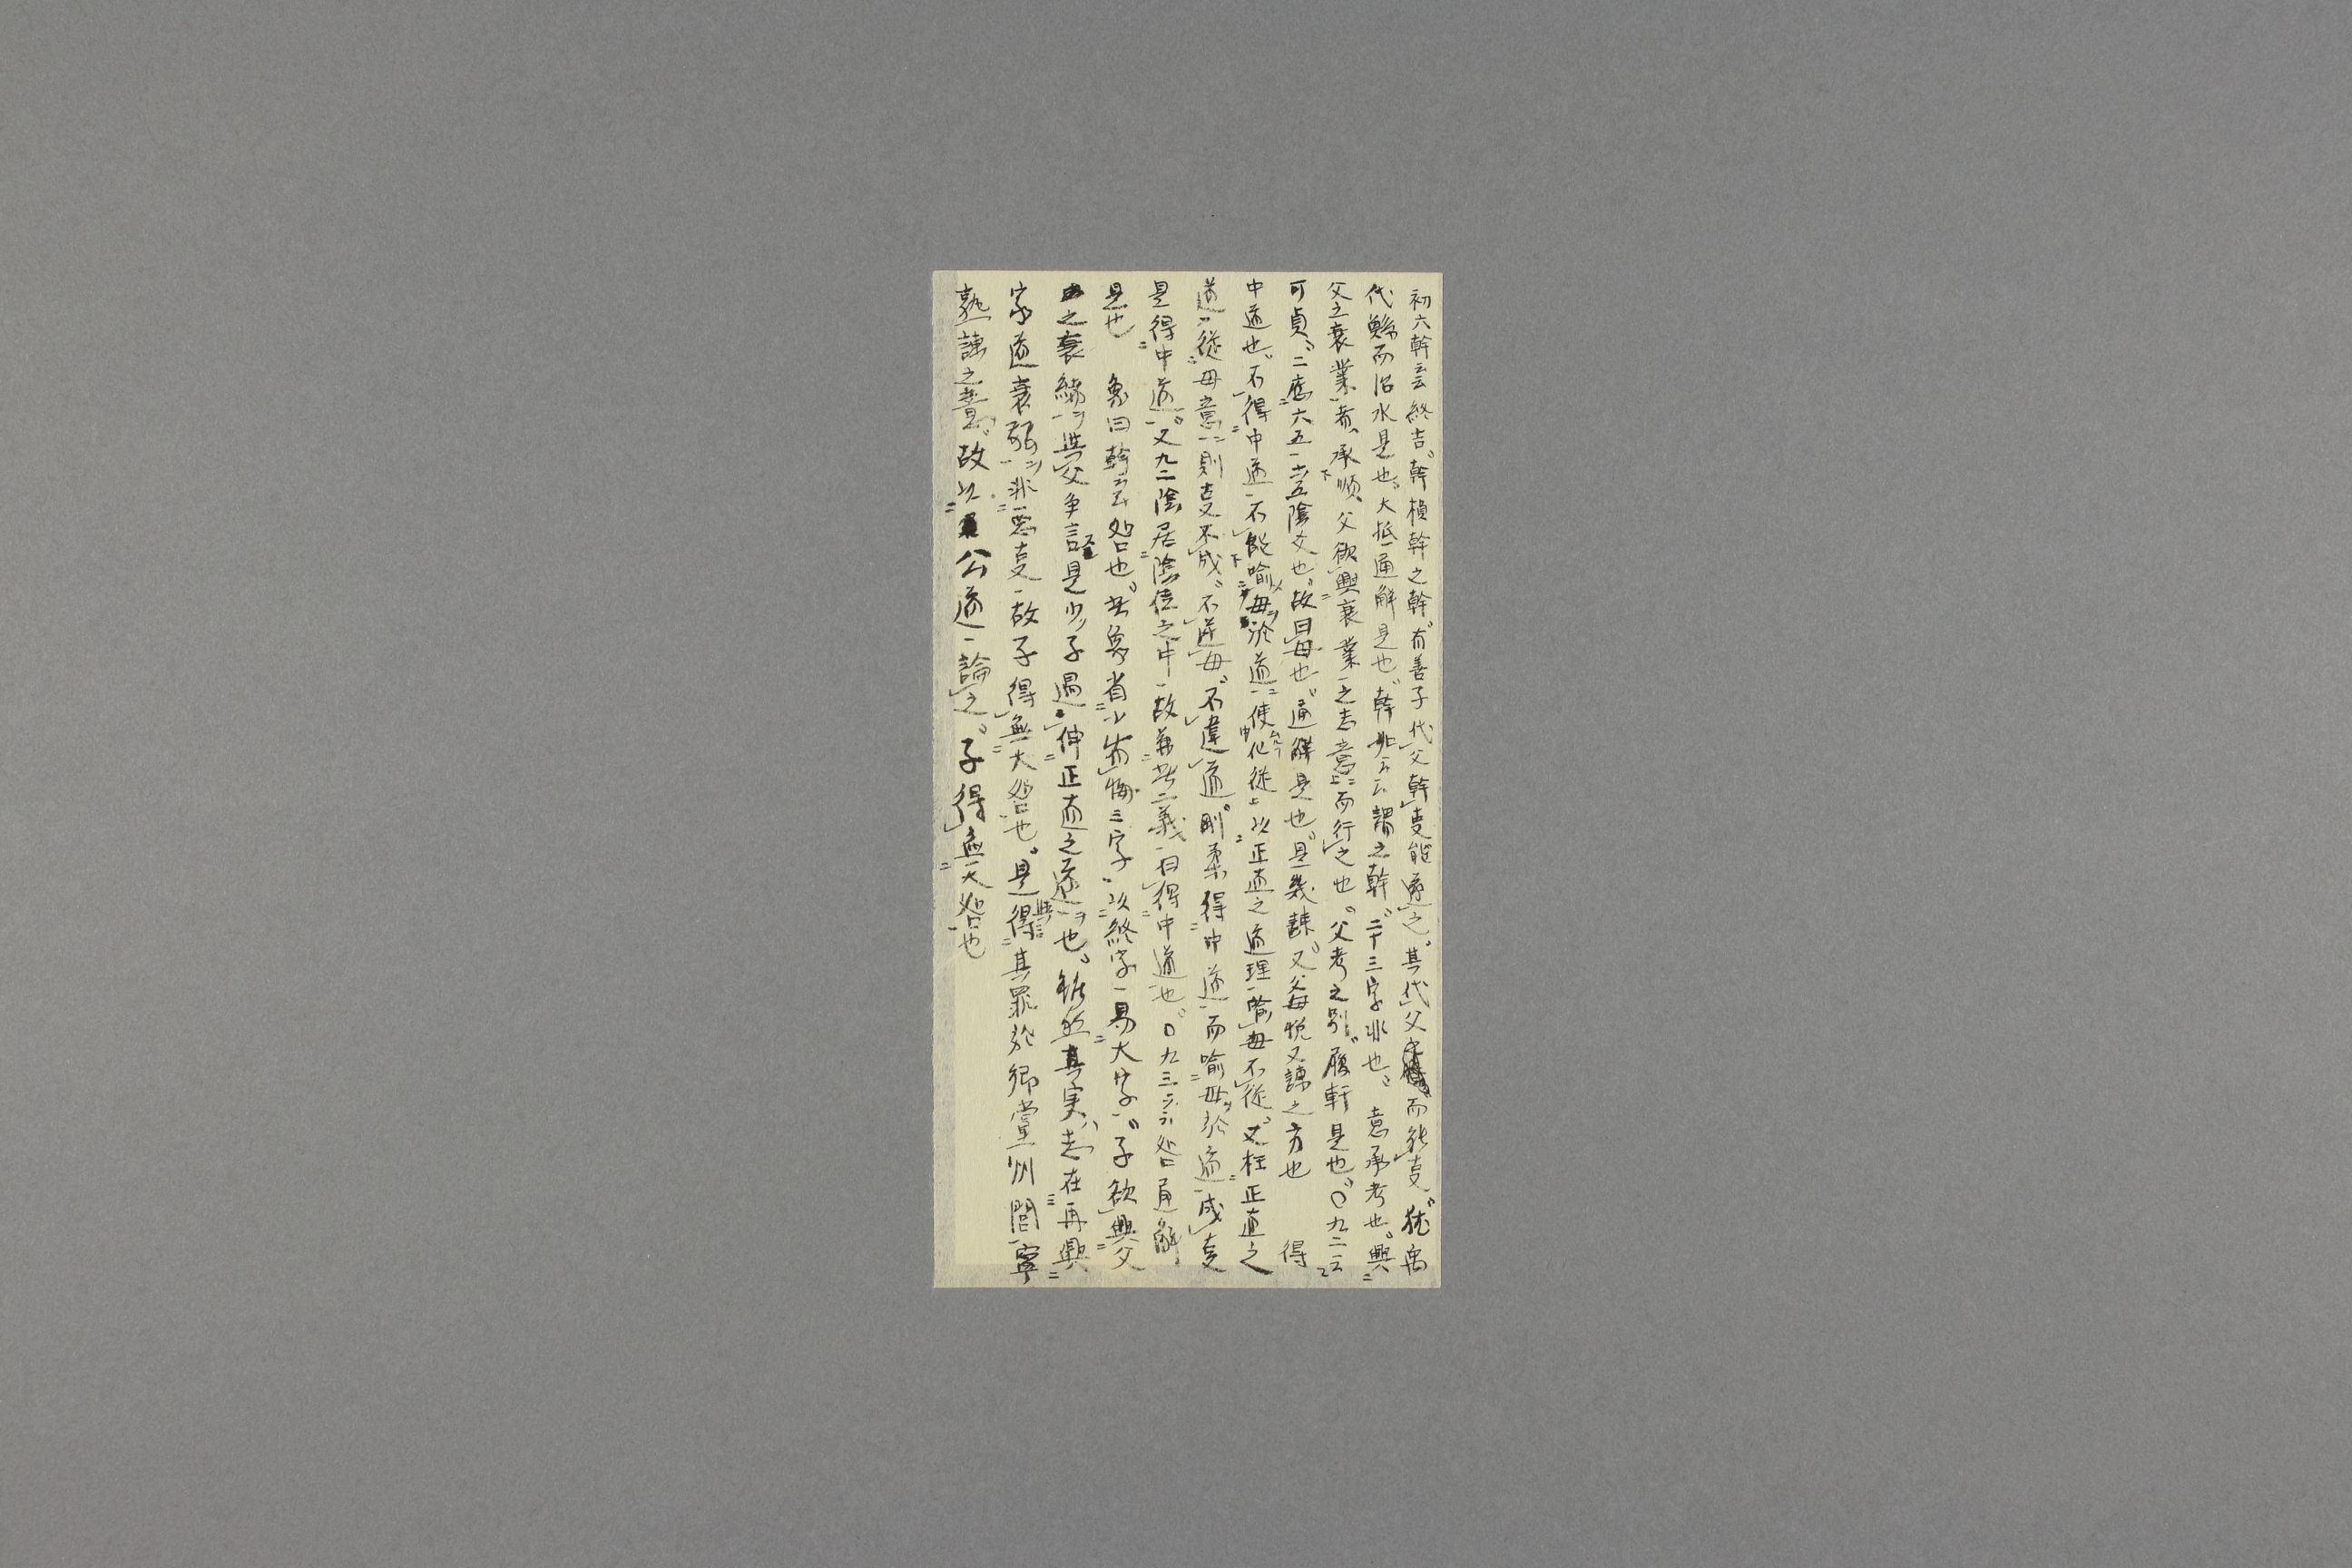 初六幹云云終吉、幹楨幹之幹、有善子代父幹事能遂之、其代父而能事、猶禹
代鯀而治水是也、大抵通解是也、幹如云云謂之幹、二十三字非也、意承考也、興
父之衰業者、承順父欲興衰業之志意而行之也、父考之別、履軒是也、○九二云云
可貞、二應六五、六五陰爻也、故曰母也、通解是也、是幾諫、又父母悦又諫之方也 得
中道也、不得中道不能喻母於道使化從以正直之道理喻母不從、又枉正直之
道從母意則事不成、不逆母、不違道、剛柔得中道而喻母於道成事
是得中道、又九二陰居陰位之中、故兼此二義曰得中道也、○九三云云咎通解
是也 象曰幹云云咎也、此象省小有悔三字、以終字易大字、子欲興父
之衰緒與父争 是少子過、伸正直之道也、雖然其実志在再興
家道衰頽、非惡事、故子得無大咎也、是得其罪於鄉黨州閭寧
熟諫之意、故以公道論之、子得無大咎也